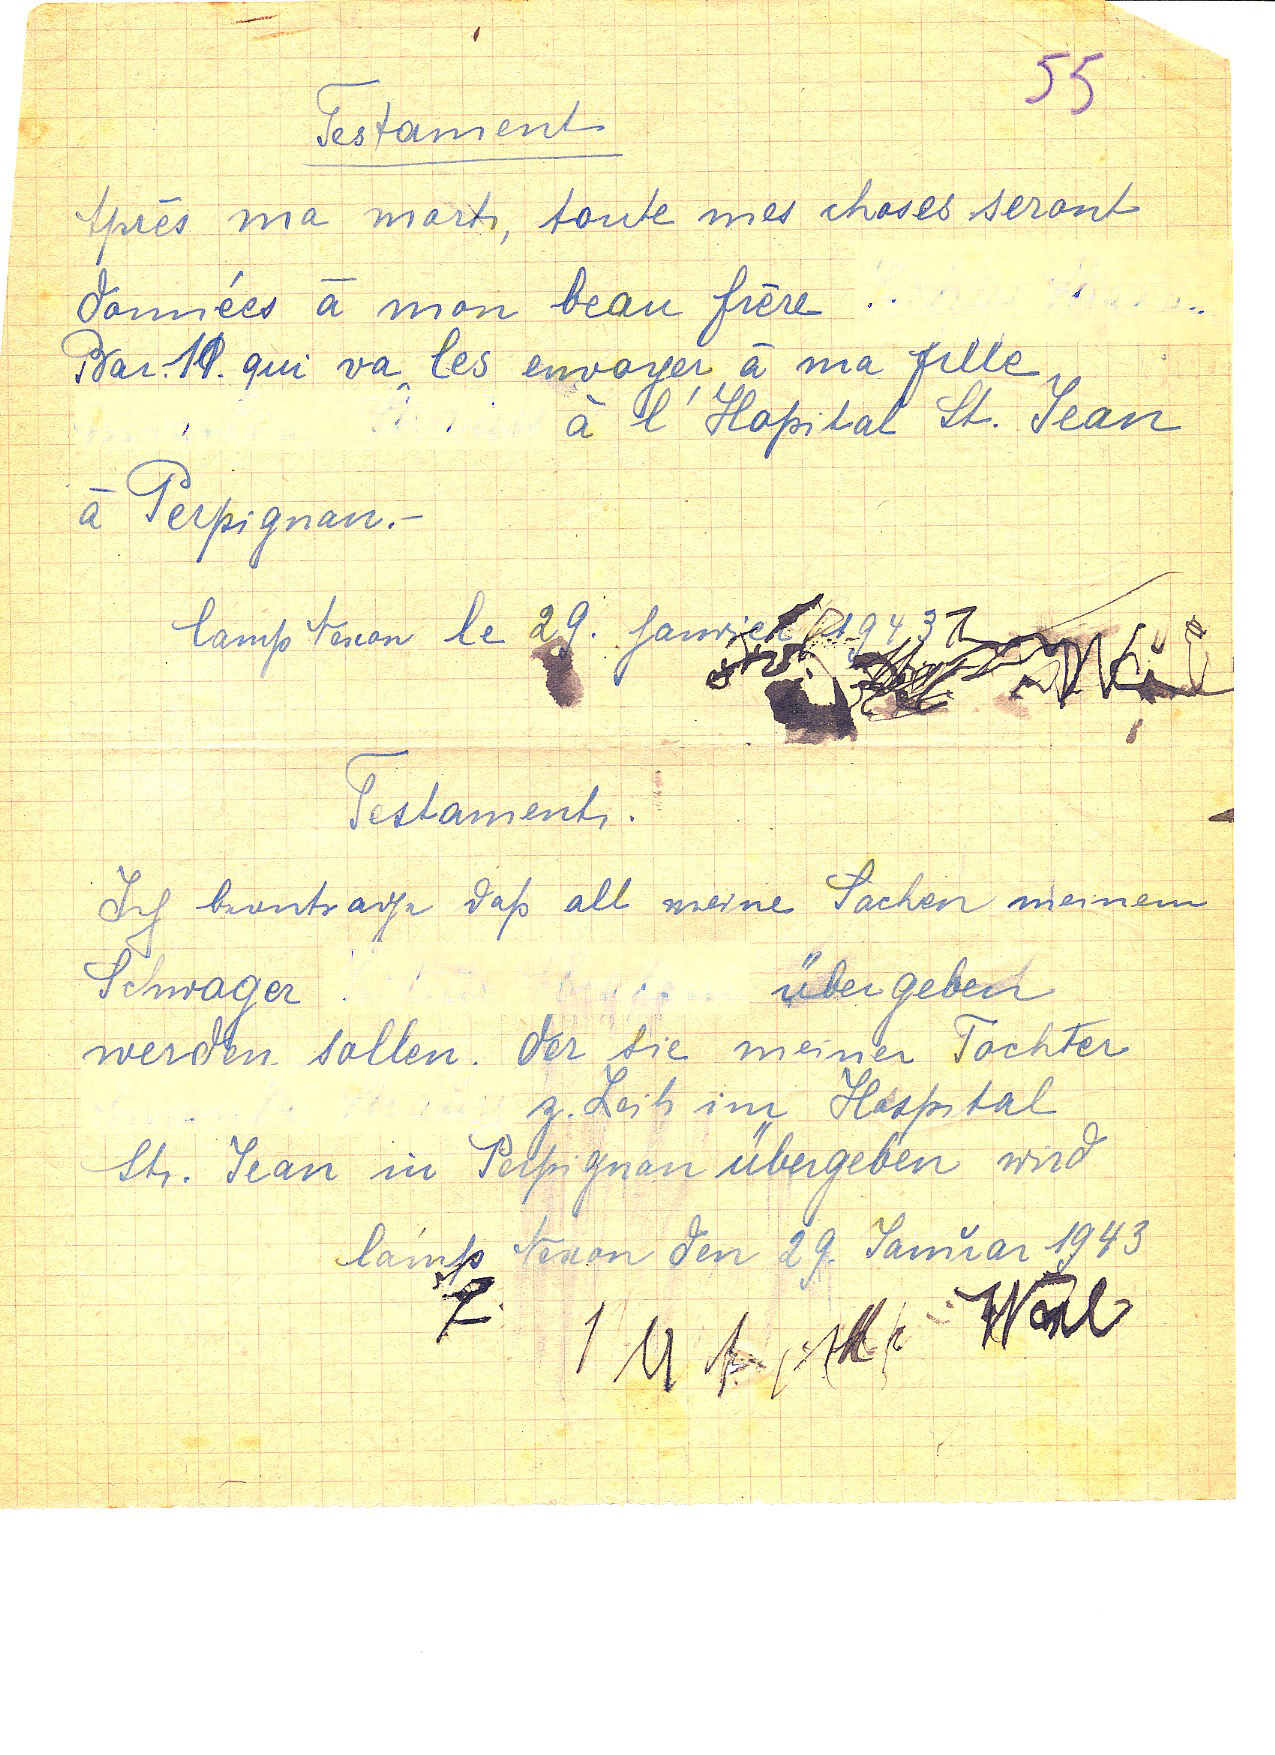 55
Testament
Après ma mort, toute mes choses seront
données à mon beau frère
Bar. 11. qui va les envoyer à ma fille
à l'Hopital St. Jean
à Perpignan.-
Camp Nexon le 29. janvier 1943
Testament.
Ich beantrage daß all meine Sachen meinem
Schwager übergeben
werden sollen. der sie meiner Tochter
z. Zeit im Hospital
St. Jean in Perpignan übergeben wird
Camp Nexon den 29. Januar 1943